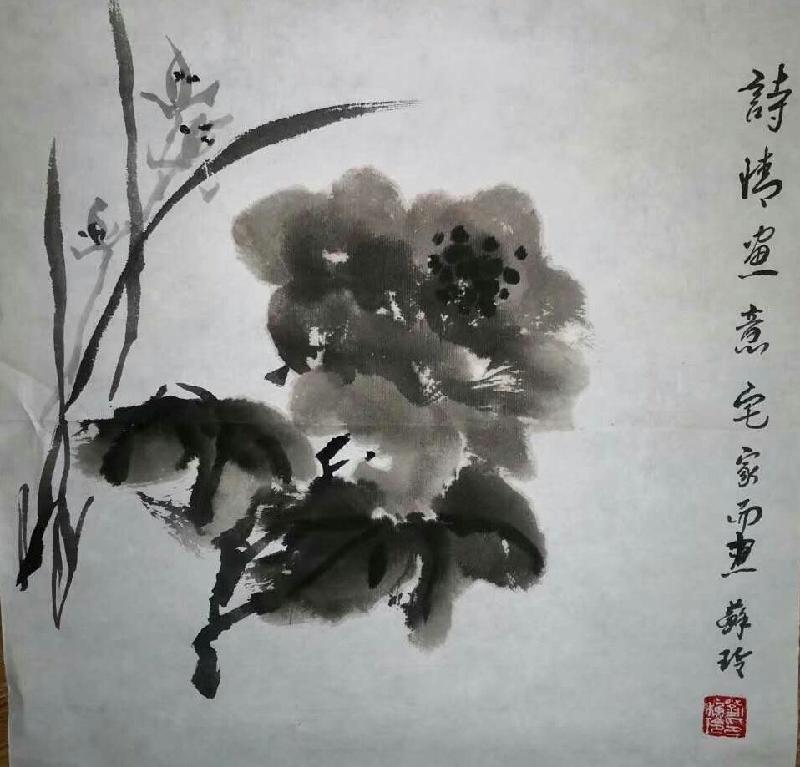 詩情畫意宅家而畫蘇玲